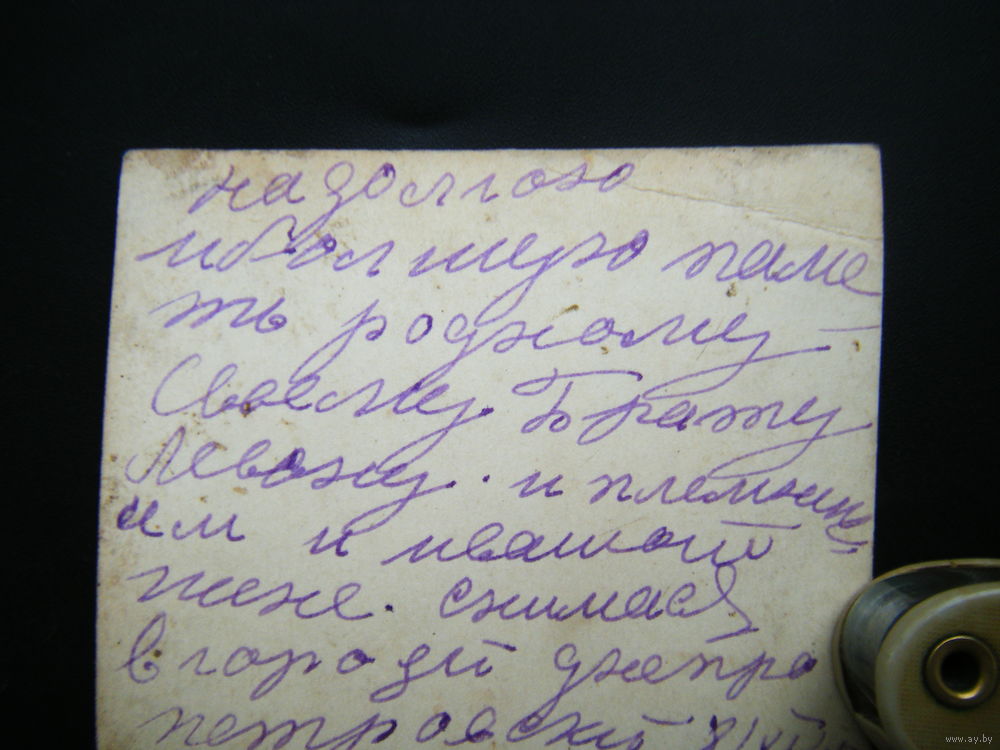 на долгою
иболшую паме
ть родному -
Своему Брату
Левону. и племник
ам и ивашой
жене. снимася
вгороди днепро
петровски
www.ay.by